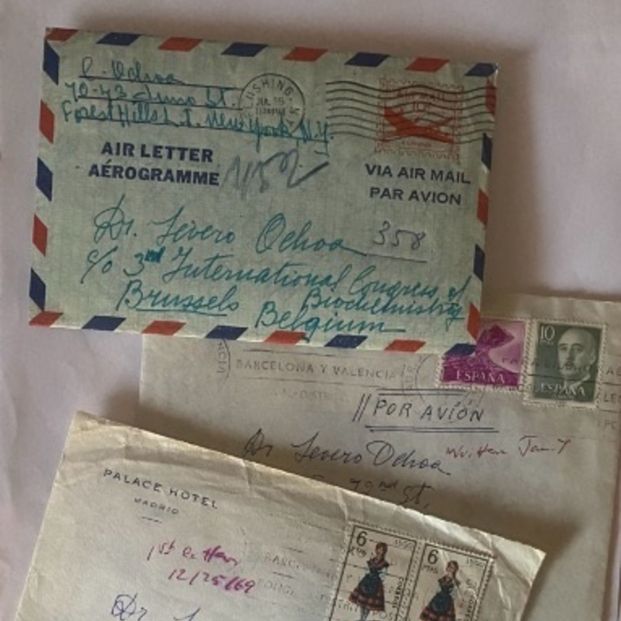 C. Ochoa
70-73 Juno St.
Forest Hills L. I. New York N.Y.
FLUSHING N.Y.
JUL 16
AIR MAIL
10¢
AIR LETTER
AÉROGRAMME
VIA AIR MAIL
PAR AVION
358
Dr. Severo Ochoa
c/o 3rd International Congress of
Biochemistry
Brussels Belgium
BARCELONA Y VALENCIA
ESPAÑA
10
ESPAÑA
POR AVIÓN
Dr. Severo Ochoa
72nd St,
PALACE HOTEL
MADRID
12/25/69
6
PTAS
6
PTAS
Dr